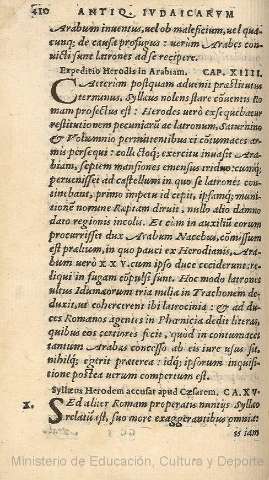 410 ANTIQ. IVDAICARVM
Arabum inuentus, uel ob maleficium, uel quacunq;
de causa profugus: uerum Arabes conuicti
sunt latrones ad se recipere.
Expeditio Herodis in Arabiam. CAP. XIIII.
Caeterùm postquam aduenit praestitutus
terminus, Syllæus nolens stare cõuentis Romam
profectus est: Herodes uerò exsequebatur
restitutionem pecuniarũ ac latronum, Saturnino
& Volumnio permittentibus ei cõtumaces armis
persequi: collecto itaq; exercitu inuasit Arabiam,
septem mansiones emensus triduo: cumq́;
peruenisset ad castellum in quo se latrones continebant,
primo impetu id cepit, ipsamq; munitionē
nomine Raptam diruit, nullo alio damno
dato regionis incolis. Et cùm in auxiliũ eorum
procurrisset dux Arabum Nacebus, cõmissum
est prælium, in quo pauci ex Herodianis, Arabum
uerò XXV. cum ipso duce ceciderunt: reliqui
in fugam cõpulsi sunt. Hoc modo latrones
ultus Idumæorum tria millia in Trachonem deduxit,
ut cohercerent ibi latrocinia: & ad duces
Romanos agentes in Phœnicia dedit literas,
quibus eos certiores fecit, quòd in contumaces
tantum Arabas concesso ab eis iure usus sit,
nihilq́; egerit præterea: idq́; ipsorum inquisitione
postea uerum compertum est.
Syllæus Herodem accusat apud Cæsarem. CA. XV
X. Sed aliter Romam properatis nuncijs Syllæo
relatũ est, suo more exaggerantibus omnia:
iam
Ministerio de Educación, Cultura y Deporte